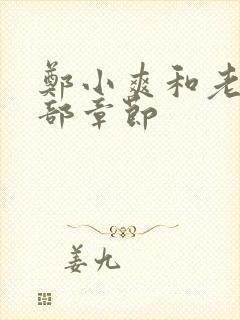 鄭小爽和老
部章節
姜九